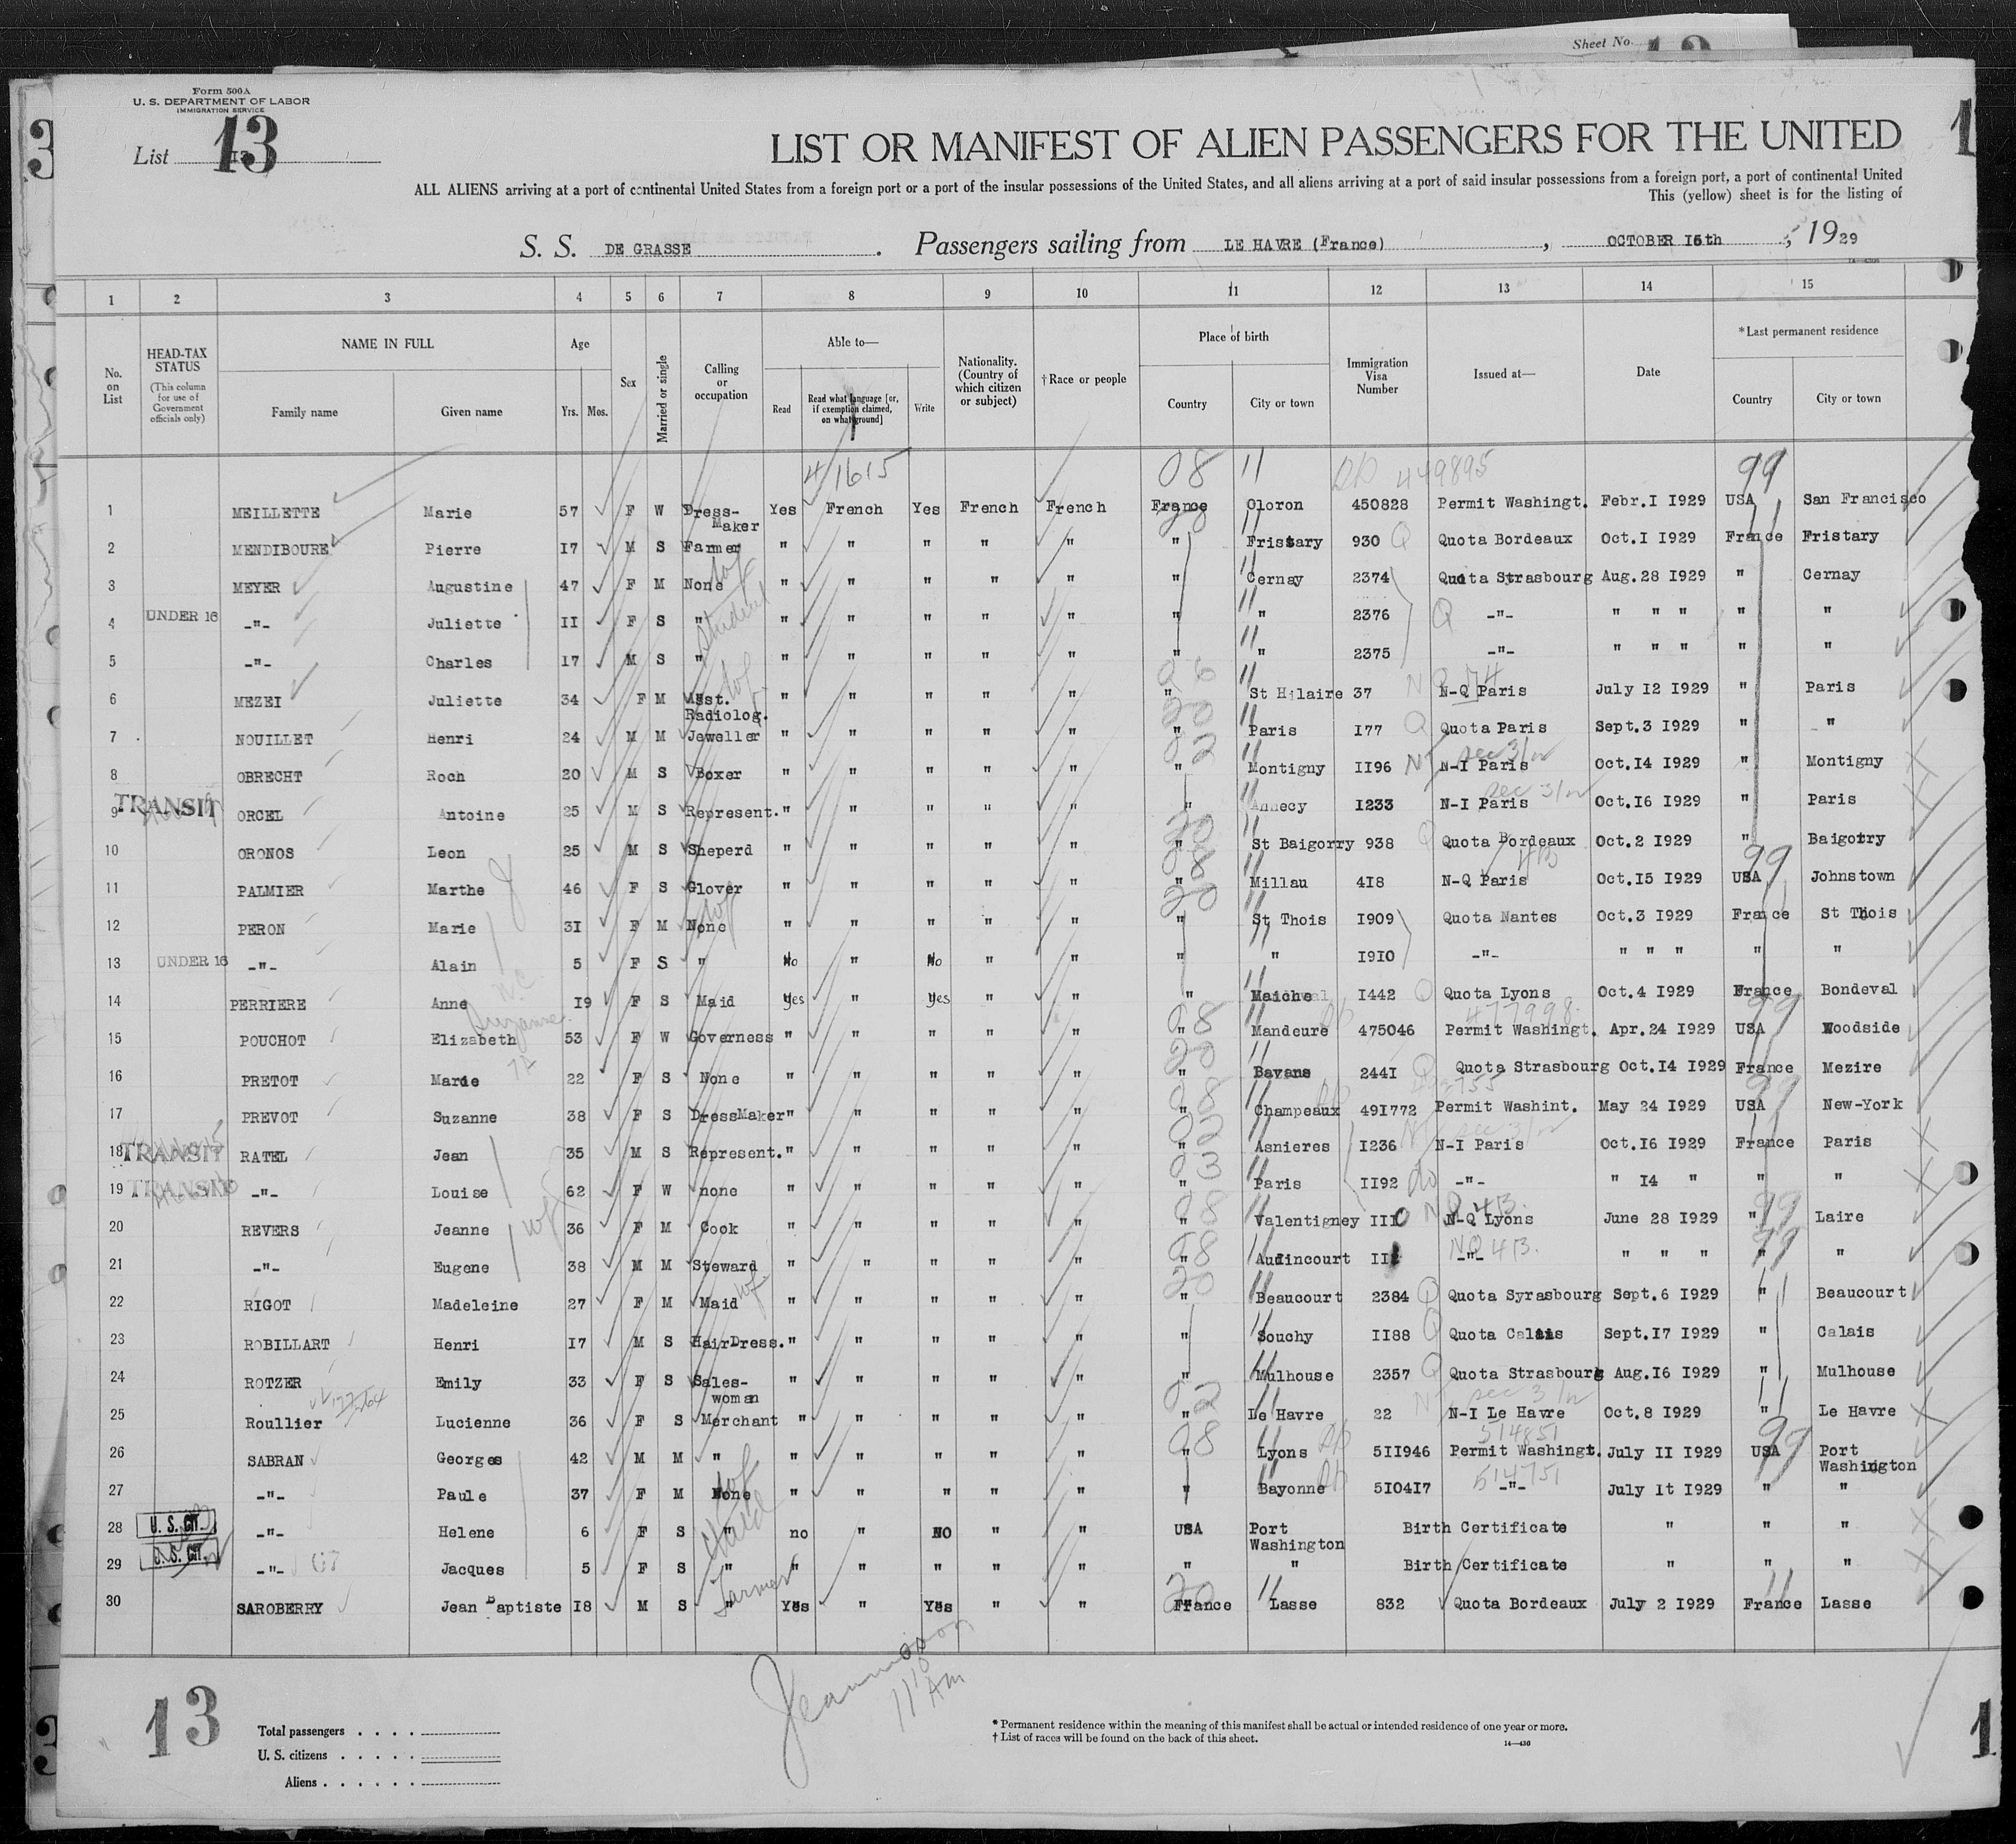 Sheet No.
Form 500A
U. S. DEPARTMENT OF LABOR
IMMIGRATION SERVICE
List 13
LIST OR MANIFEST OF ALIEN PASSENGERS FOR THE UNITED
ALL ALIENS arriving at a port of continental United States from a foreign port or a port of the insular possessions of the United States, and all aliens arriving at a port of said insular possessions from a foreign port, a port of continental United
This (yellow) sheet is for the listing of
S. S. DE GRASSE. Passengers sailing from LE HAVRE (France), OCTOBER 16th, 1929
1 2 3 4 5 6 7 8 9 10 11 12 13 14 15
No. on List
HEAD-TAX STATUS (This column for use of Government officials only)
NAME IN FULL Family name Given name
Age Yrs. Mos.
Sex
Married or single
Calling or occupation
Able to— Read Read what language [or, if exemption claimed, on what ground] Write
Nationality. (Country of which citizen or subject)
† Race or people
Place of birth Country City or town
Immigration Visa Number
Issued at—
Date
* Last permanent residence Country City or town
4/1615 08 11 449895 99
1 MEILLETTE Marie 57 F W Dress-Maker Yes French Yes French French France Oloron 450828 Permit Washingt. Febr.I I929 USA San Francisco
2 MENDIBOURE Pierre I7 M S Farmer " " " " " " Fristary 930 Q Quota Bordeaux Oct.I I929 France Fristary
3 MEYER Augustine 47 F M None " " " " " " Cernay 2374 Quota Strasbourg Aug.28 I929 " Cernay
4 UNDER 16 -"- Juliette II F S " " " " " " " " 2376 Q -"- " " " " "
5 -"- Charles I7 M S " " " " " " " " 2375 -"- " " " " "
6 MEZEI Juliette 34 F M Asst. Radiolog. " " " " " " St Hilaire 37 N-Q Paris July I2 I929 " Paris
7 NOUILLET Henri 24 M M Jeweller " " " " " " Paris I77 Q Quota Paris Sept.3 I929 " "
8 OBRECHT Roch 20 M S Boxer " " " " " " Montigny II96 N-I Paris Oct.I4 I929 " Montigny
9 TRANSIT ORCEL Antoine 25 M S Represent. " " " " " " Annecy I233 N-I Paris Oct.I6 I929 " Paris
10 ORONOS Leon 25 M S Sheperd " " " " " " St Baigorry 938 Quota Bordeaux Oct.2 I929 " Baigorry
11 PALMIER Marthe 46 F S Glover " " " " " " Millau 4I8 N-Q Paris Oct.I5 I929 USA Johnstown
12 PERON Marie 3I F M None " " " " " " St Thois I909 Quota Nantes Oct.3 I929 France St Thois
13 UNDER 16 -"- Alain 5 F S " No " No " " " " I9I0 -"- " " " " "
14 PERRIERE Anne I9 F S Maid Yes " Yes " " " I442 Q Quota Lyons Oct.4 I929 France Bondeval
15 POUCHOT Elizabeth 53 F W Governess " " " " " " Mandeure 475046 Permit Washingt. Apr.24 I929 USA Woodside
16 PRETOT Marie 22 F S None " " " " " " Bavans 244I Q Quota Strasbourg Oct.I4 I929 France Mezire
17 PREVOT Suzanne 38 F S DressMaker " " " " " " Champeaux 49I772 Permit Washint. May 24 I929 USA New-York
18 TRANSIT RATEL Jean 35 M S Represent. " " " " " " Asnieres I236 N-I Paris Oct.I6 I929 France Paris
19 TRANSIT -"- Louise 62 F W none " " " " " " Paris II92 do -"- " I4 " " "
20 REVERS Jeanne 36 F M Cook " " " " " " Valentigney III0 N-Q Lyons June 28 I929 " Laire
21 -"- Eugene 38 M M Steward " " " " " " Audincourt -"- " " " " "
22 RIGOT Madeleine 27 F M Maid " " " " " " Beaucourt 2384 Q Quota Syrasbourg Sept.6 I929 " Beaucourt
23 ROBILLART Henri I7 M S HairDress. " " " " " " Souchy II88 Q Quota Calais Sept.I7 I929 " Calais
24 ROTZER Emily 33 F S Sales-woman " " " " " " Mulhouse 2357 Q Quota Strasbourg Aug.I6 I929 " Mulhouse
25 Roullier Lucienne 36 F S Merchant " " " " " " Le Havre 22 N-I Le Havre Oct.8 I929 " Le Havre
26 SABRAN Georges 42 M M " " " " " " " Lyons 5II946 Permit Washingt. July II I929 USA Port Washington
27 -"- Paule 37 F M None " " " " " " Bayonne 5I04I7 -"- July It I929 " "
28 U. S. CIT. -"- Helene 6 F S " no " NO " " USA Port Washington Birth Certificate " " "
29 U. S. CIT. -"- Jacques 5 F S " " " " " " " " Birth Certificate " " "
30 SAROBERRY Jean Baptiste I8 M S " Farmer Yes " Yes " " France Lasse 832 Quota Bordeaux July 2 I929 France Lasse
11 AM
13
Total passengers . . . .
U. S. citizens . . . . .
Aliens . . . . . .
* Permanent residence within the meaning of this manifest shall be actual or intended residence of one year or more.
† List of races will be found on the back of this sheet.
14—436